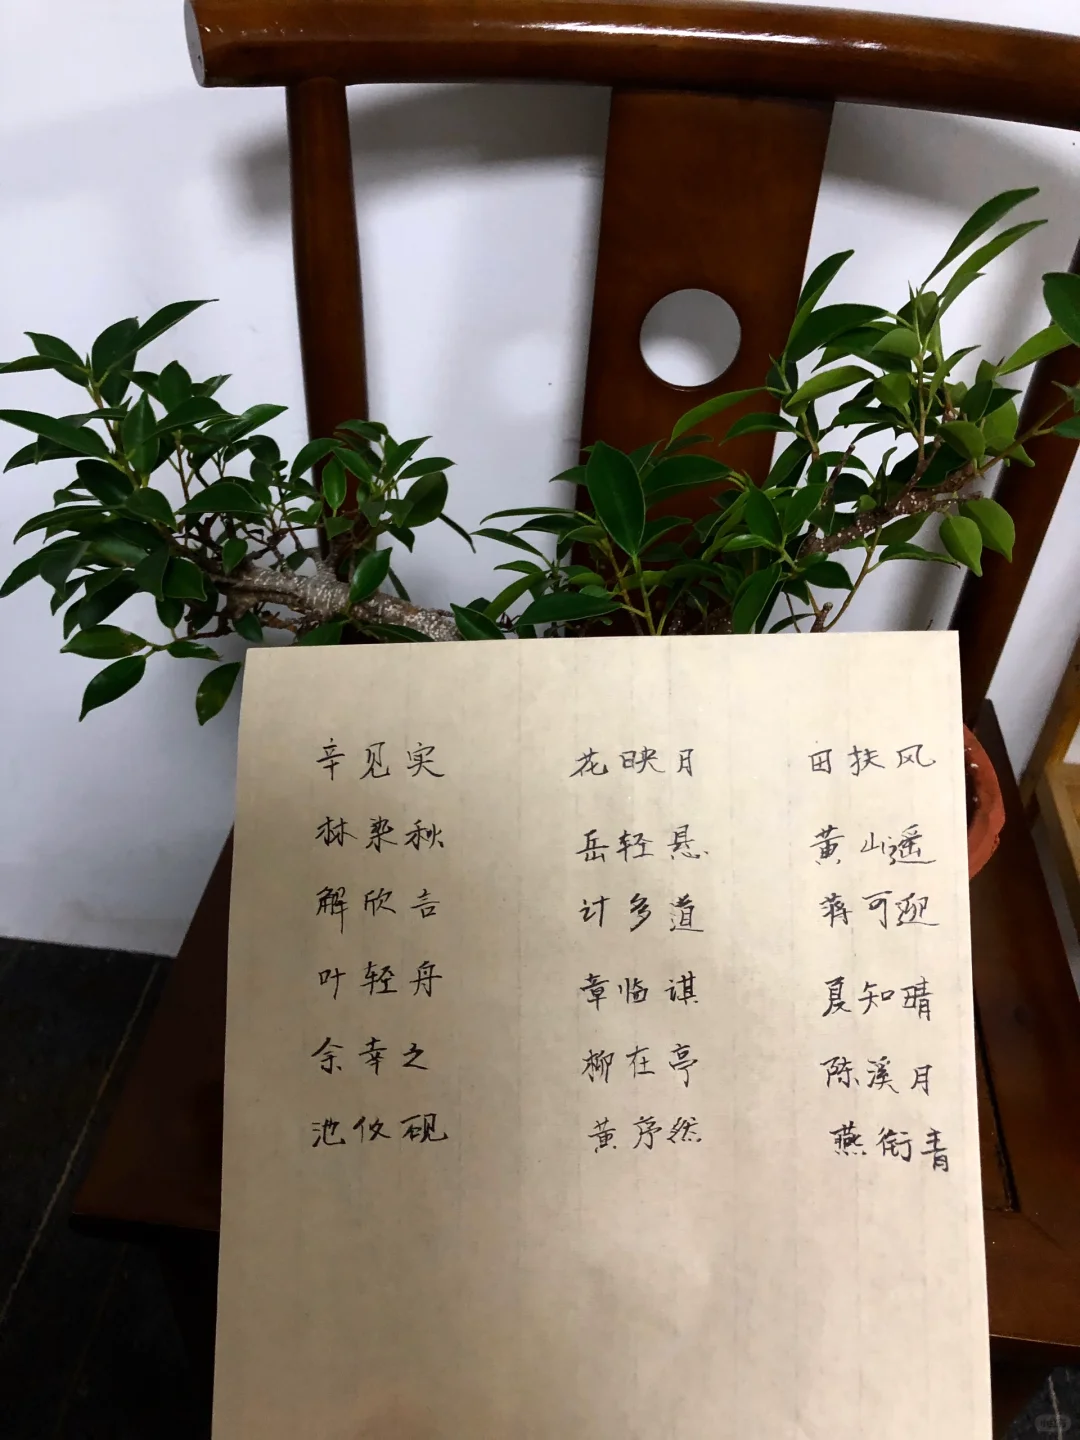 辛见实 花映月 田扶风
林染秋 岳轻悬 黄山遥
解欣言 计多道 蒋可迎
叶轻舟 章临谋 夏知晴
余幸之 柳在亭 陈溪月
池攸砚 黄序然 燕衔青